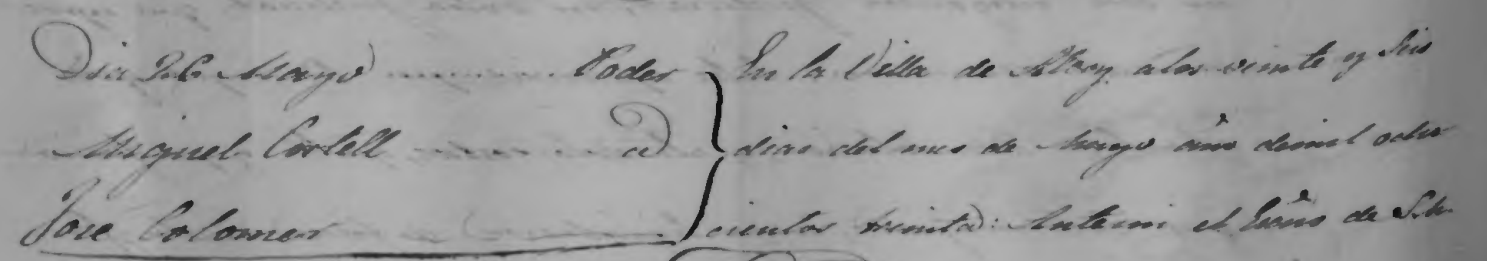 Dia 26 Mayo Poder
Miguel Cortell a
José Colomer
En la Villa de Alcoy a los veinte y seis
dias del mes de Mayo año de mil ocho
cientos treinta: Ante mi el Esno de S. M.